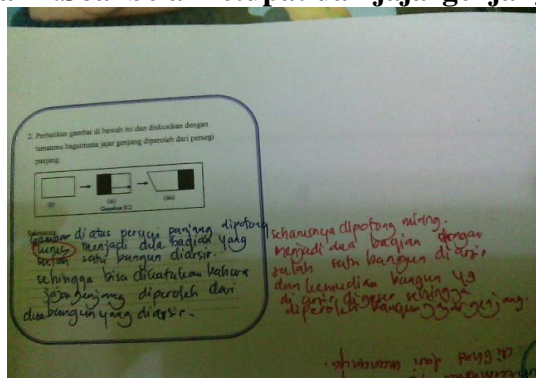 2. Perhatikan gambar di bawah ini dan diskusikan dengan
temanmu bagaimana jajar genjang diperoleh dari persegi
panjang.
(i)
(ii)
(iii)
Gambar 8.2
Gambar diatas persegi panjang dipotong
lurus menjadi dua bagian yang
salah satu bangun diarsir.
sehingga bisa dikatakan bahwa
jajargenjang diperoleh dari
dua bangun yang diarsir.
seharusnya dipotong miring.
menjadi dua bagian dengan
salah satu bangun diarsir
dan kemudian bangun yg
diarsir digeser sehingga
diperoleh bangun jajargenjang.